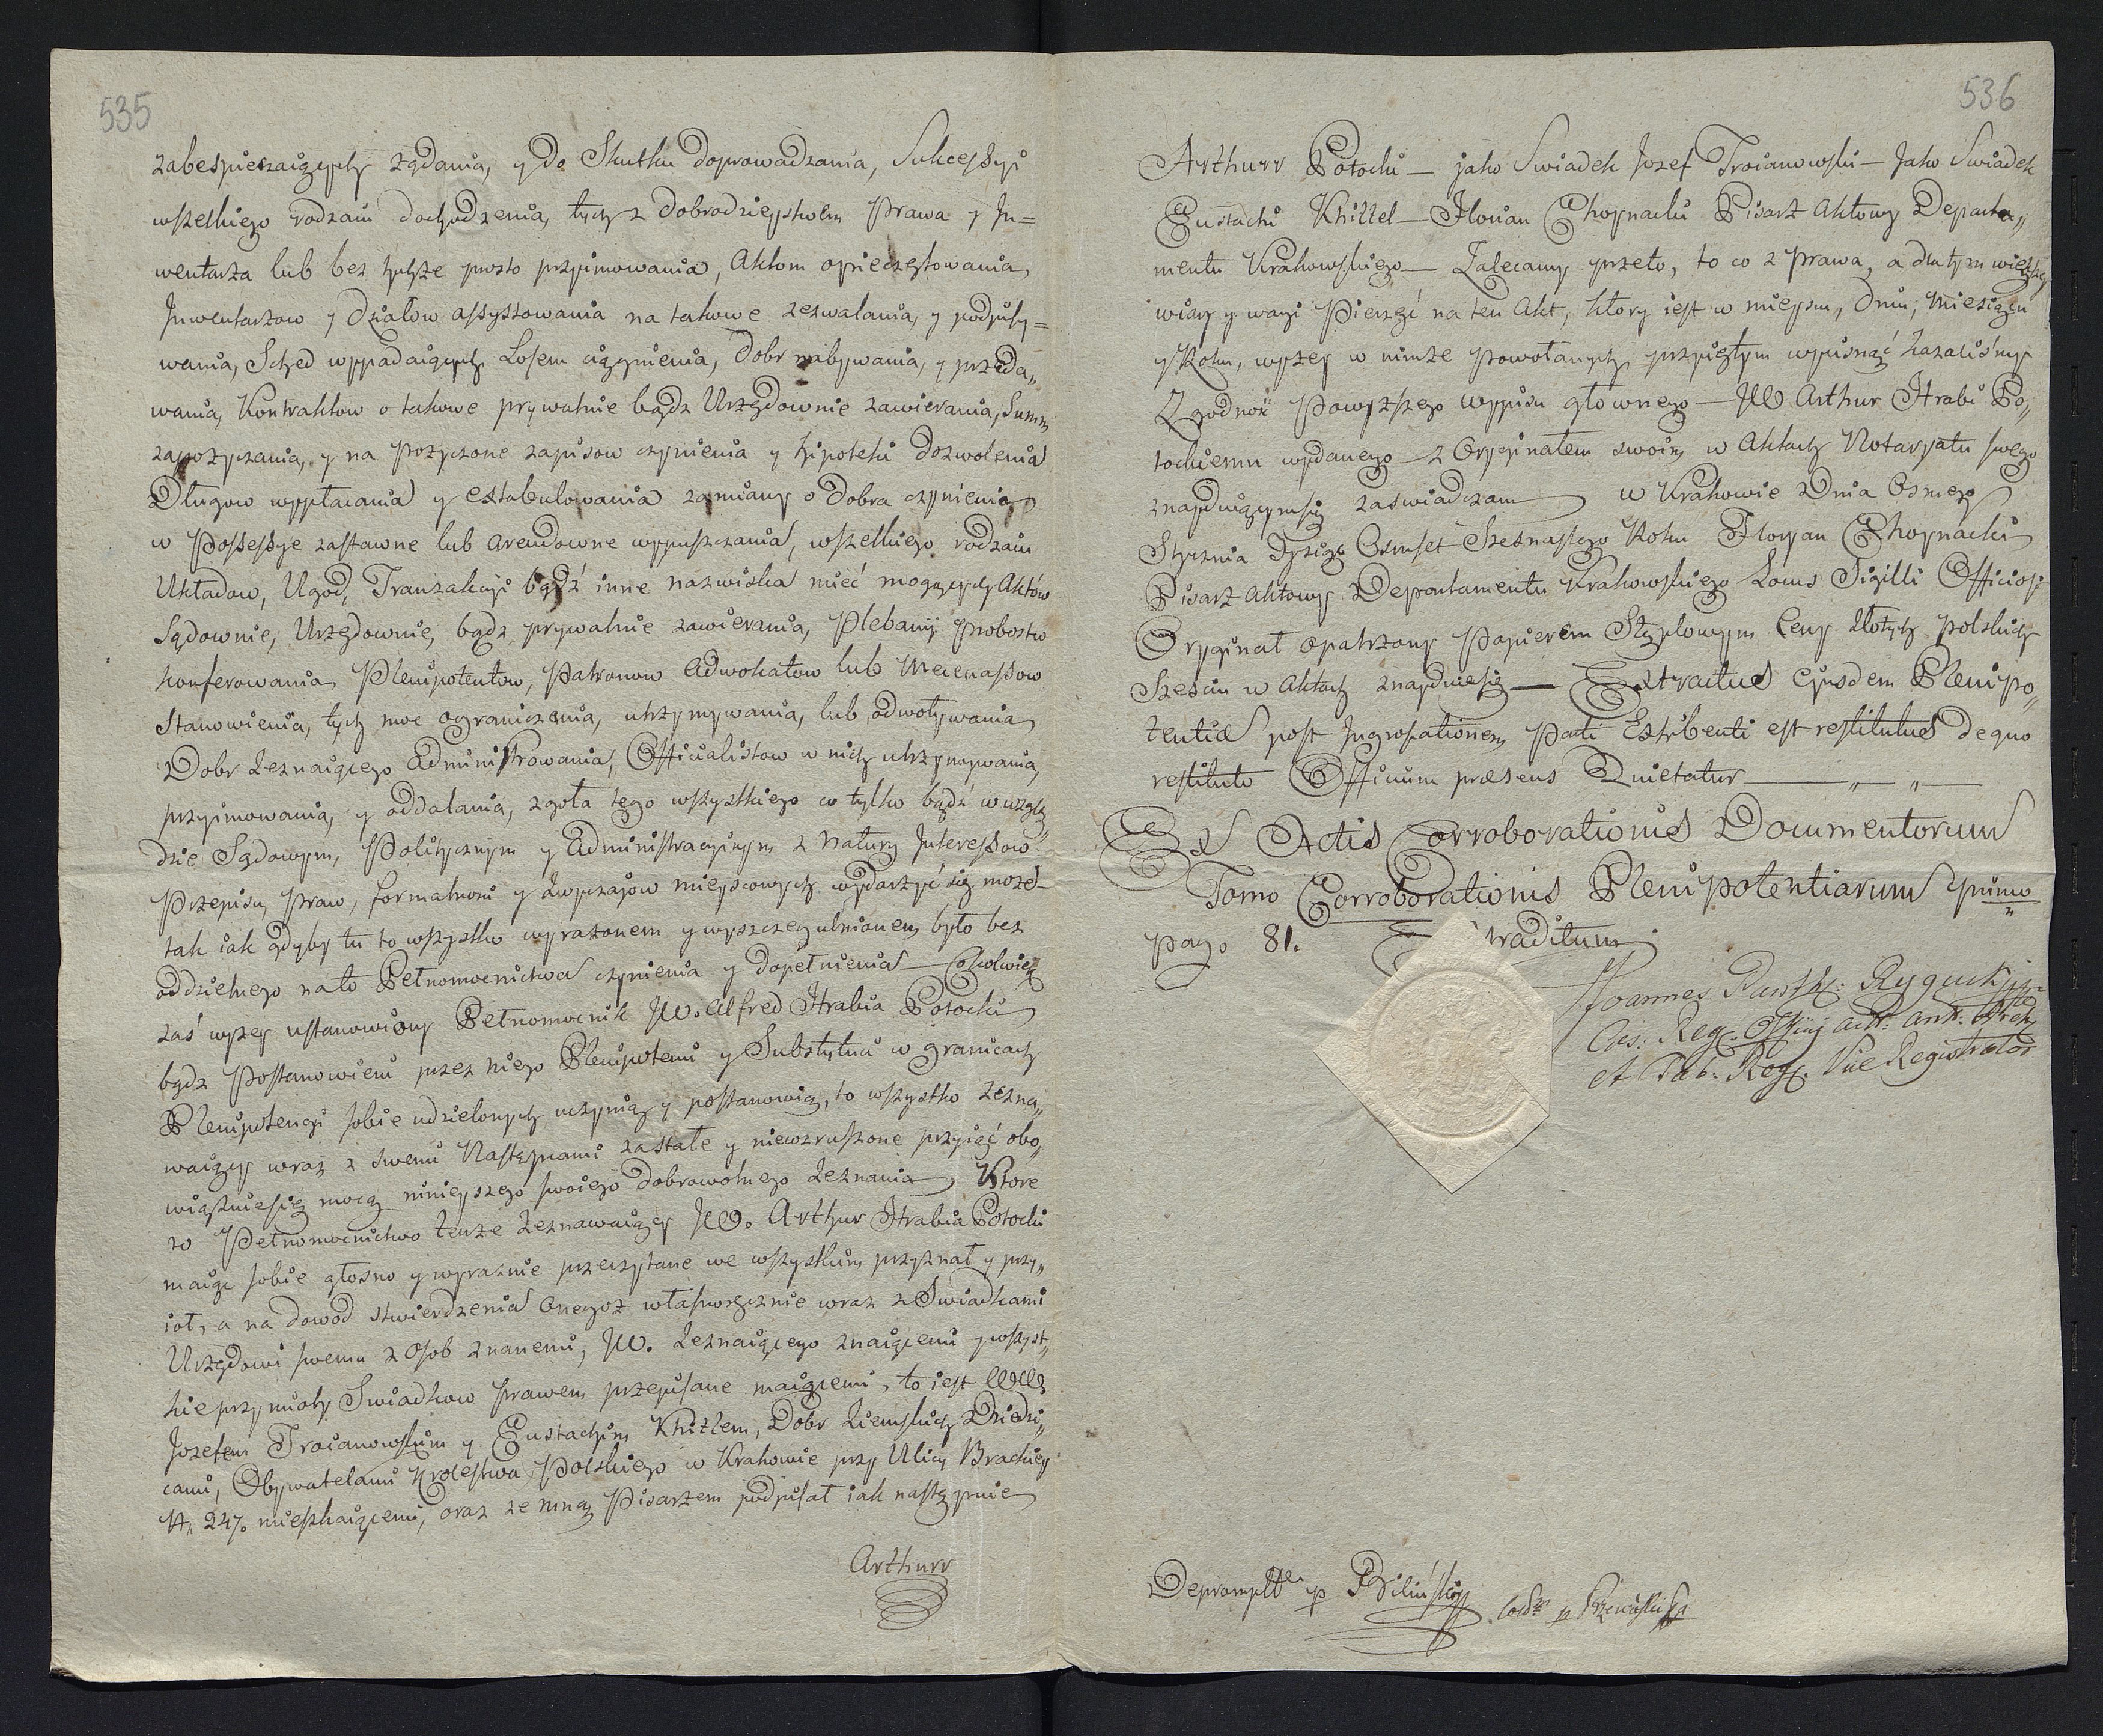 535
zabespieczaiących żądania, y do Skutku doprowadzania, Sukcessyi
wszelkiego rodzaiu dochodzenia, tych z Dobrodzieystwem Prawa y In=
wentarza lub bez tychże prosto przyimowania, Aktom opieczętowania
Inwentarzow y Działow assystowania na takowe zezwalania, y podpisy=
wania, Sched wypadaiących Losem ciągnienia, Dobr nabywania, y przeda„
wania, Kontraktow o takowe prywatnie bądz Urzędownie zawierania, Summ
zapożyczania, y na pożyczone zapisow czynienia y hipoteki dozwolenia
Długow wypłacania y extabulowania zamiany o Dobra czynienia
w Possessye zastawne lub arendowne wypuszczania, wszelkiego rodzaiu
Układow, Ugod, Tranzakcyi bądź inne nazwiska mieć mogących Aktów
Sądownie, Urzędownie, bądz prywatnie zawierania, Plebanij Probostw
konferowania Plenipotentow, Patronow Adwokatow lub Mecenassow
Stanowienia, tych moc ograniczania, utrzymywania, lub odwoływania
Dobr Zeznaiącego Administrowania, Officialistow w nich utrzymywania,
przyimowania, y oddalania, zgoła tego wszystkiego co tylko bądź w wzglę„
dzie Sądowym, Politycznym y Administracyinym z Natury Interessow
Przepisu Praw, formalnosci y zwyczaiow mieyscowych wydarzyć się może
tak iak gdyby tu to wszystko wyrażonem y wyszczegulnionem było bez
oddzielnego na to Pełnomocnictwa czynienia y dopełnienia — Cokolwiek
zaś wyzey ustanowiony Pełnomocnik JW. Alfred Hrabia Potocki
bądz Postanowieni przez niego Plenipotenci y Substytuci w granicach
Plenipotencyi sobie udzielonych uczynią y postanowią, to wszystko Zezna„
waiący wraz z swemi Następcami za stałe y niewzruszone przyiąć obo„
wiązuiesię mocą ninieyszego swoiego dobrowolnego Zeznania — Ktore
to Pełnomocnictwo tenże Zeznawaiący JW. Arthur Hrabia Potocki
maiąc sobie głosno y wyraznie przeczytane we wszystkim przyznał y przy„
iał, a na dowod stwierdzenia onegoz własnoręcznie wraz z Swiadkami
Urzędowi swemu z Osob znanemi, JW. Zeznaiącego znaiącemi y wszyst„
kie przymioty Swiadkow prawem przepisane maiącemi, to iest WW
Jozefem Troianowskim y Eustachim Khitlem, Dobr Ziemskich Dziedzi„
cami, Obywatelami Krolestwa Polskiego w Krakowie przy Ulicy Brackiey
N. 247. mieszkaiącemi, oraz ze mną Pisarzem podpisał iak następuie
Arthurr
536
Arthurr Potocki — jako Swiadek Jozef Troianowski — Jako Swiadek
Eustachi Khittel — Florian Choynacki Pisarz Aktowy Departa„
mentu Krakowskiego — Zalecamy przeto, to co z prawa, a dla tym większey
wiary y wagi Pieczęć na ten Akt, ktory iest w mieyscu, Dniu, Miesiącu
y Roku, wyzey w nimże powołanych przyiętym wycisnąć kazaliśmy
Zgodność Powyższego Wypisu głownego — JW Arthur Hrabi Po„
tockiemu wydanego — z Oryginałem swoim w Aktach Notaryatu swego
znayduiącymsię zaswiadczam — w Krakowie Dnia Osmego
Stycznia Tysiąc Osmset Szesnastego Roku Floryan Choynacki
Pisarz Aktowy Departamentu Krakowskiego Locus Sigilli Officiosi
Oryginał opatrzony Papierem Stęplowym Ceny Złotych Polskich
Szesciu w Aktach znayduiesię — Extractus Ejusdem Plenipo„
tentiae post Ingrossationem Parti Exhibenti est restitutus de quo
restituto Officium praesens Quietatur
Ex Actis Corroborationis Documentorum
Tomo Corroborationis Plenipotentiarum primo
pag. 81. Extraditum
Joannes
Caes: Reg: Officij
et Tab: Reg: Vice Registrator
Deprompt p Biliński